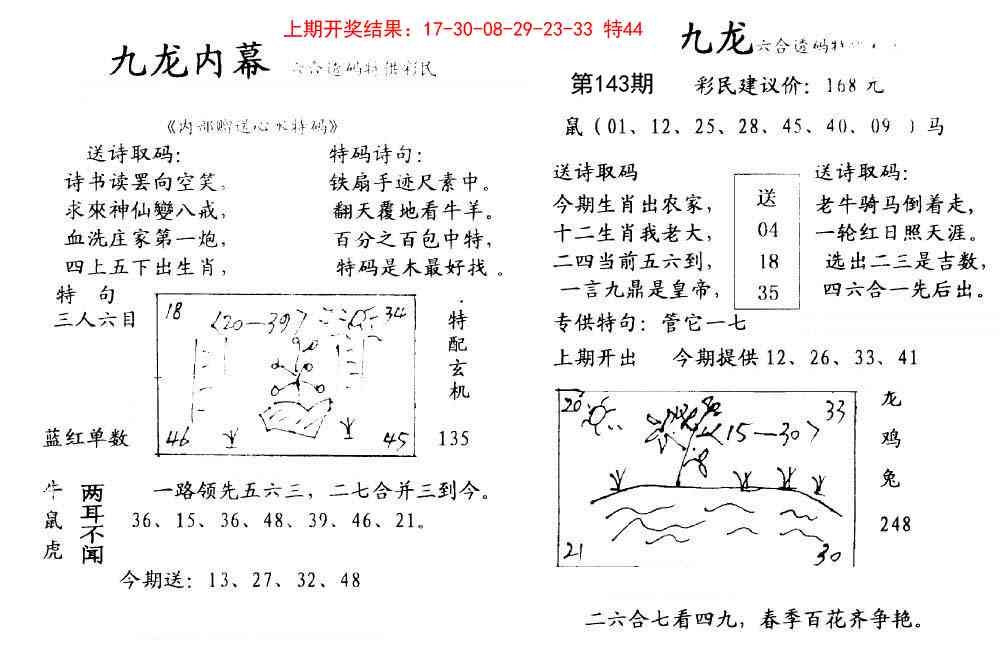 上期开奖结果：17-30-08-29-23-33 特44
九龙内幕 六合透码特供彩民
《内部赠送心水特码》
送诗取码：
诗书读罢向空笑。
求來神仙變八戒，
血洗庄家第一炮，
四上五下出生肖，
特码诗句：
铁扇手迹尺素中。
翻天覆地看牛羊。
百分之百包中特，
特码是木最好找。
特 句
三人六目
蓝红单数
18
〈20—39〉
34
46
45
特配玄机
135
牛鼠虎
两耳不闻
一路领先五六三，二七合并三到今。
36、15、36、48、39、46、21。
今期送：13、27、32、48
九龙 六合透码
第143期 彩民建议价：168元
鼠（01、12、25、28、45、40、09 ）马
送诗取码
今期生肖出农家，
十二生肖我老大，
二四当前五六到，
一言九鼎是皇帝，
送
04
18
35
送诗取码：
老牛骑马倒着走，
一轮红日照天涯。
选出二三是吉数，
四六合一先后出。
专供特句：管它一七
上期开出 今期提供12、26、33、41
20
33
〈15—30〉
21
30
龙
鸡
兔
248
二六合七看四九，春季百花齐争艳。